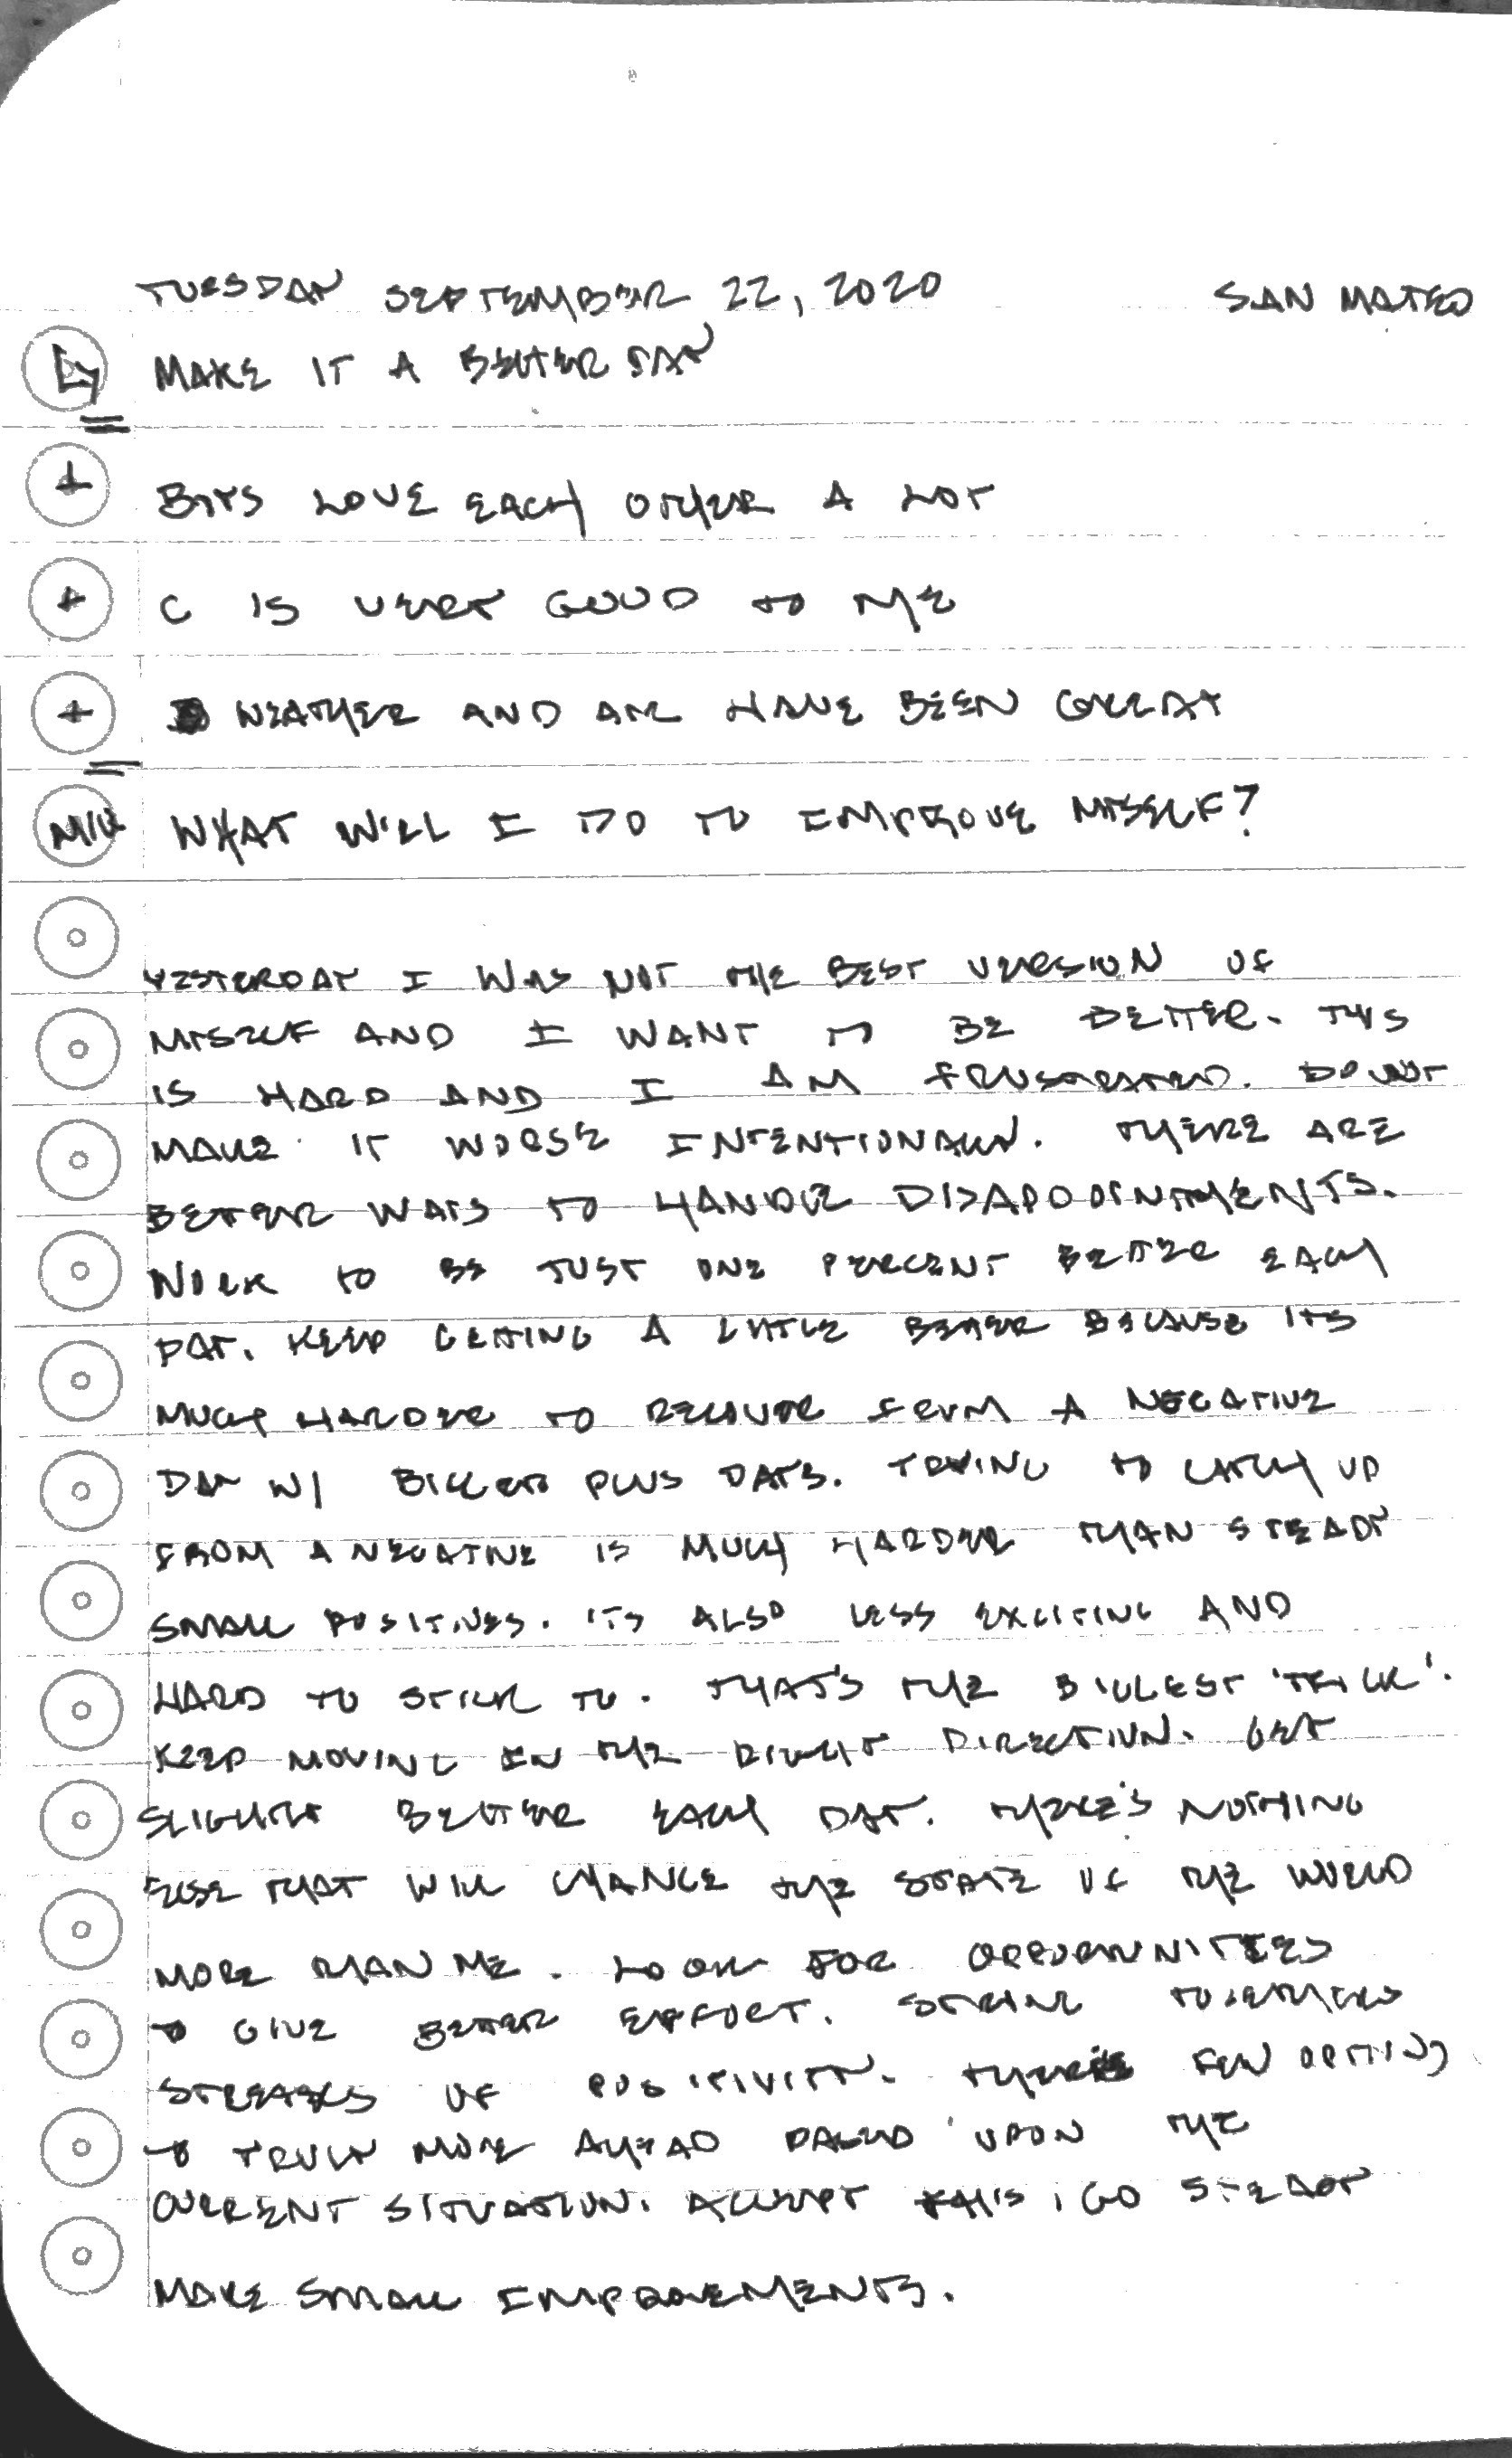 TUESDAY SEPTEMBER 22, 2020 SAN MATEO
Ey MAKE IT A BETTER DAY
+ BOYS LOVE EACH OTHER A LOT
+ C IS VERY GOOD TO ME
+ WEATHER AND AIR HAVE BEEN GREAT
WHAT WILL I DO TO IMPROVE MYSELF?
YESTERDAY I WAS NOT THE BEST VERSION OF
MYSELF AND I WANT TO BE BETTER. THIS
IS HARD AND I AM FRUSTRATED. DO NOT
MAKE IT WORSE INTENTIONALLY. THERE ARE
BETTER WAYS TO HANDLE DISAPPOINTMENTS.
WORK TO BE JUST ONE PERCENT BETTER EACH
DAY. KEEP GETTING A LITTLE BETTER BECAUSE ITS
MUCH HARDER TO RECOVER FROM A NEGATIVE
DAY W/ BIGGER PLUS DAYS. TRYING TO CATCH UP
FROM A NEGATIVE IS MUCH HARDER THAN STEADY
SMALL POSITIVES. ITS ALSO LESS EXCITING AND
HARD TO STICK TO. THAT'S THE BIGGEST 'TRICK'.
KEEP MOVING IN THE RIGHT DIRECTION. GET
SLIGHTLY BETTER EACH DAY. THERE'S NOTHING
ELSE THAT WILL CHANGE THE STATE OF THE WORLD
MORE THAN ME. LOOK FOR OPPORTUNITIES
TO GIVE BETTER EFFORT. STRING TOGETHER
STREAKS OF POSITIVITY. FEW OPTIONS
TO TRULY MOVE AHEAD BASED UPON THE
CURRENT SITUATION. ACCEPT THIS; GO STEADY
MAKE SMALL IMPROVEMENTS.